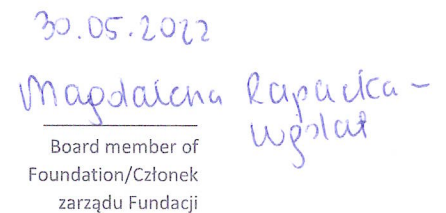 30.05.2022
Magdalena Rapacka-
Board member of
Foundation/Członek
zarządu Fundacji